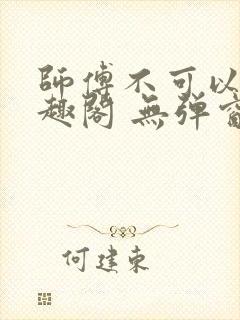 師傅不可以
趣閣 無彈窗
何建東